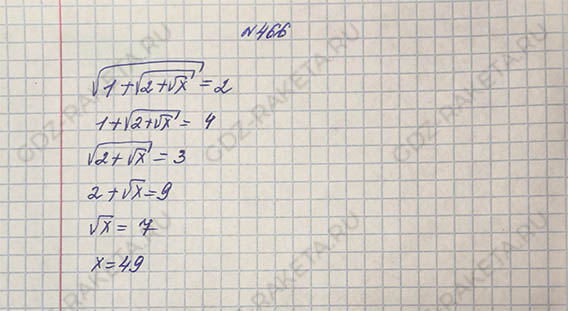 №466
√(1+√(2+√x)) = 2
1+√(2+√x) = 4
√(2+√x) = 3
2+√x=9
√x = 7
x=49
GDZ-RAKETA.RU
GDZ-RAKETA.RU
GDZ-RAKETA.RU
GDZ-RAKETA.RU
GDZ-RAKETA.RU
GDZ-RAKETA.RU